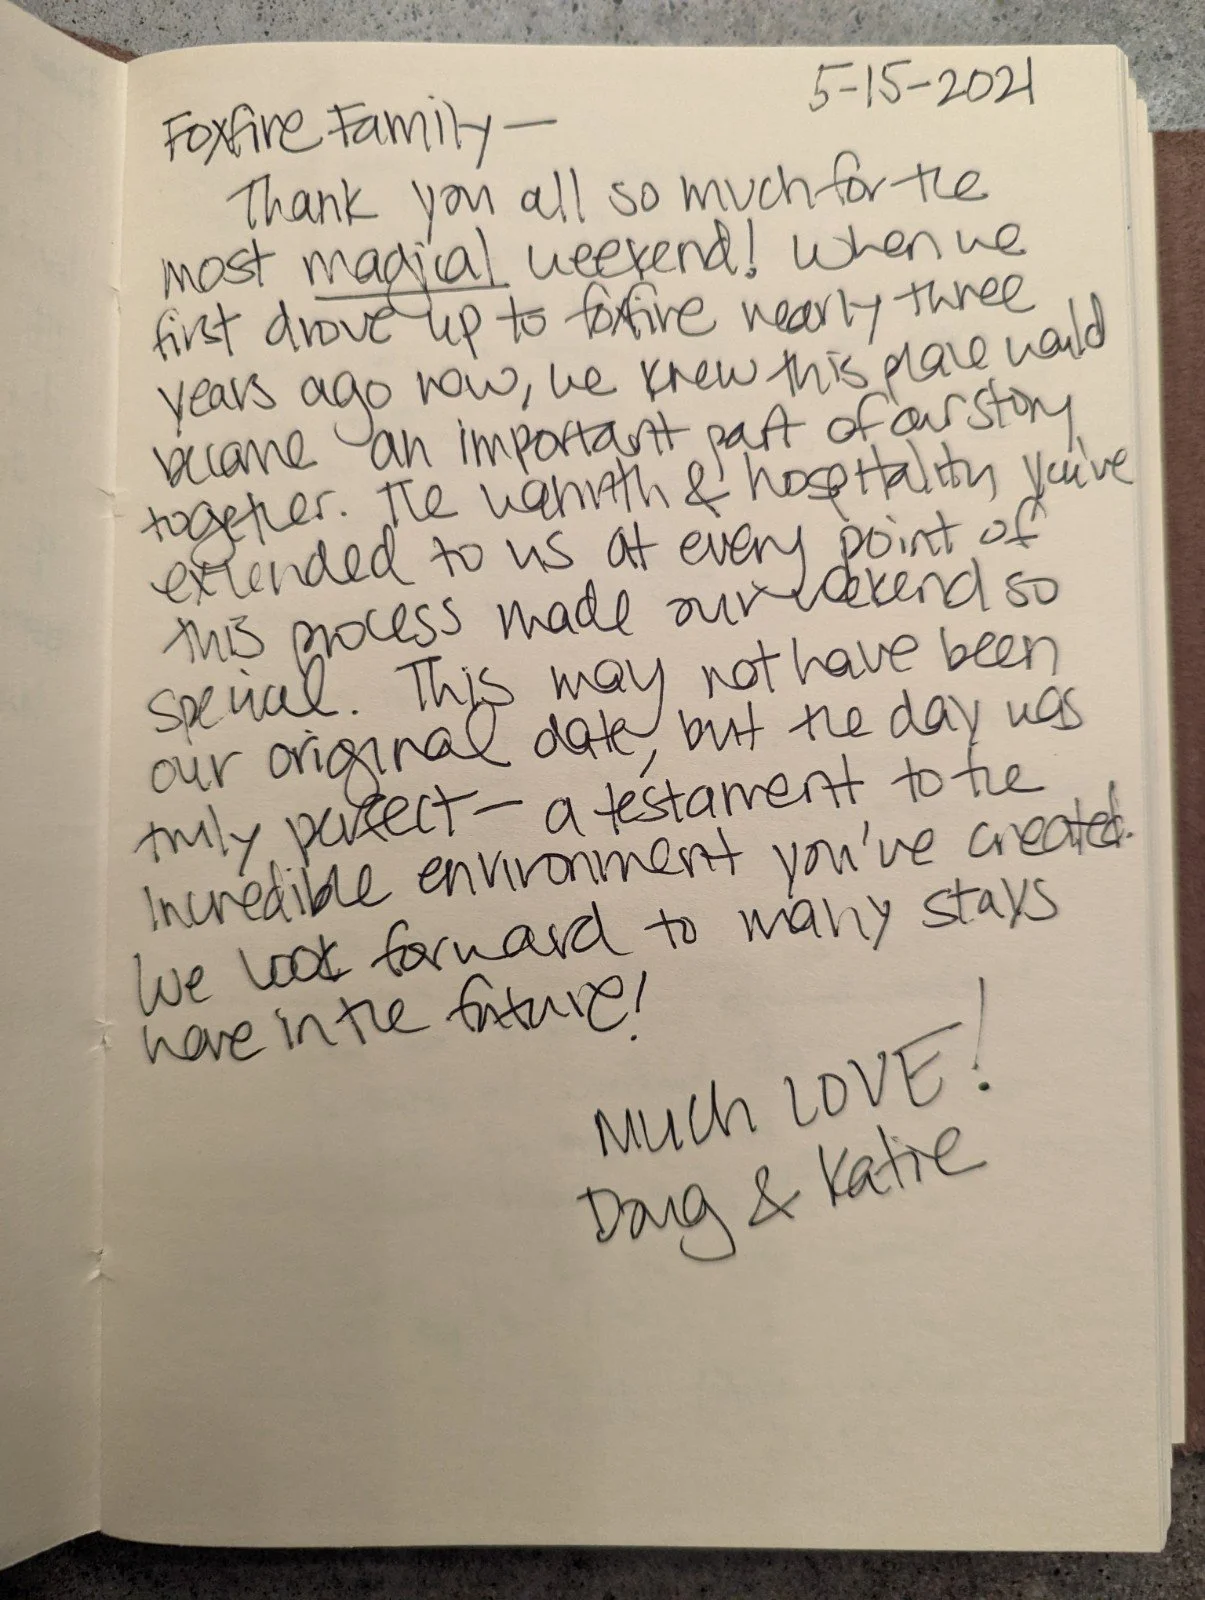 5-15-2021
Foxfire Family—
Thank you all so much for the
most magical weekend! When we
first drove up to foxfire nearly three
years ago now, we knew this place would
become an important part of our story
together. The warmth & hospitality you've
extended to us at every point of
this process made our weekend so
special. This may not have been
our original date, but the day was
truly perfect— a testament to the
incredible environment you've created.
We look forward to many stays
here in the future!
Much LOVE!
Doug & Katie